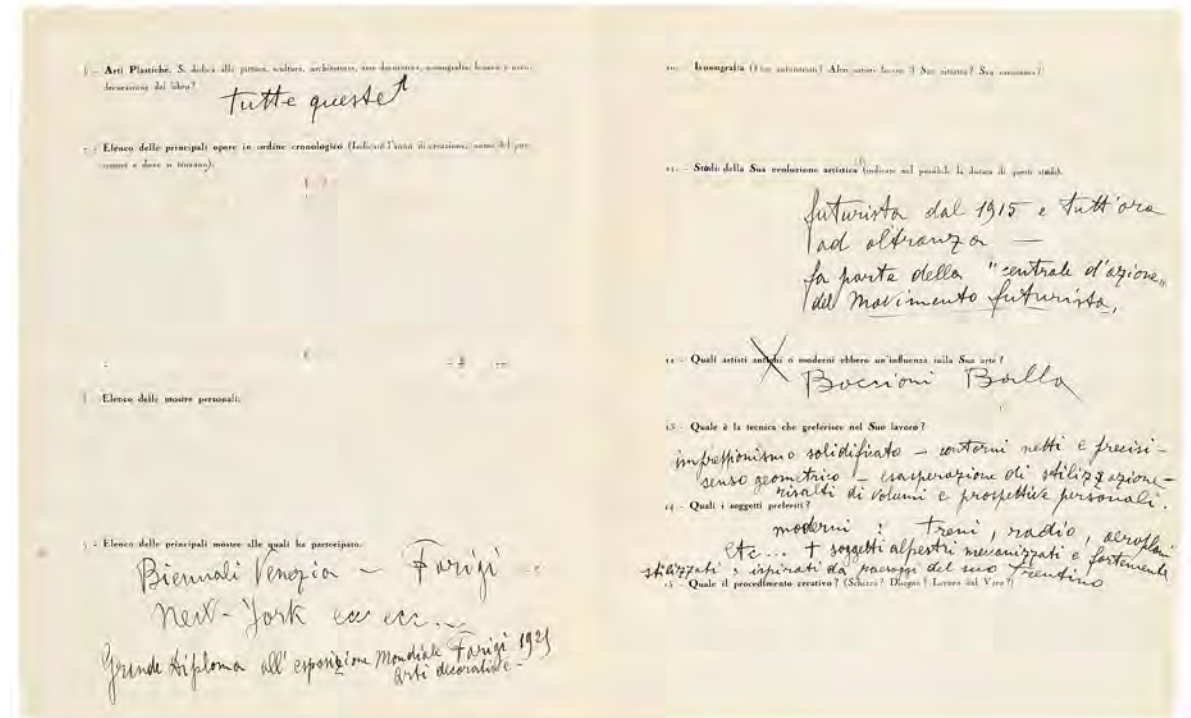 6 - Arti Plastiche. Si dedica alla pittura, scultura, architettura, arte decorativa, scenografia, bianco e nero,
decorazioni del libro?
tutte queste
7 - Elenco delle principali opere in ordine cronologico (Indicare l'anno di creazione, nome del
e dove si trovano).
8 - Elenco delle mostre personali.
9 - Elenco delle principali mostre alle quali ha partecipato.
Biennali Venezia – Parigi
New-York ecc ecc...
Grande Diploma all'esposizione Mondiale Parigi 1925
arti decorative -
10. - Iconografia (Suo autoritratto? Altri? Sua caricatura?)
11. - Studi della Sua evoluzione artistica (indicare nel possibile la durata di questi studi).
futurista dal 1915 e tutt'ora
ad oltranza —
fa parte della "centrale d'azione"
del Movimento futurista.
12 - Quali artisti antichi o moderni ebbero un'influenza sulla Sua arte?
Boccioni Balla
13 - Quale è la tecnica che preferisce nel Suo lavoro?
impressionismo solidificato – contorni netti e precisi -
senso geometrico – esasperazione di stilizzazione -
risalti di volumi e prospettive personali.
14 - Quali i soggetti preferiti?
moderni : treni, radio, aeroplani
etc... + soggetti alpestri meccanizzati e fortemente
stilizzati, ispirati da paesaggi del suo Trentino
15 - Quale il procedimento creativo? (Schizzo? Disegno? Lavoro dal Vero?)